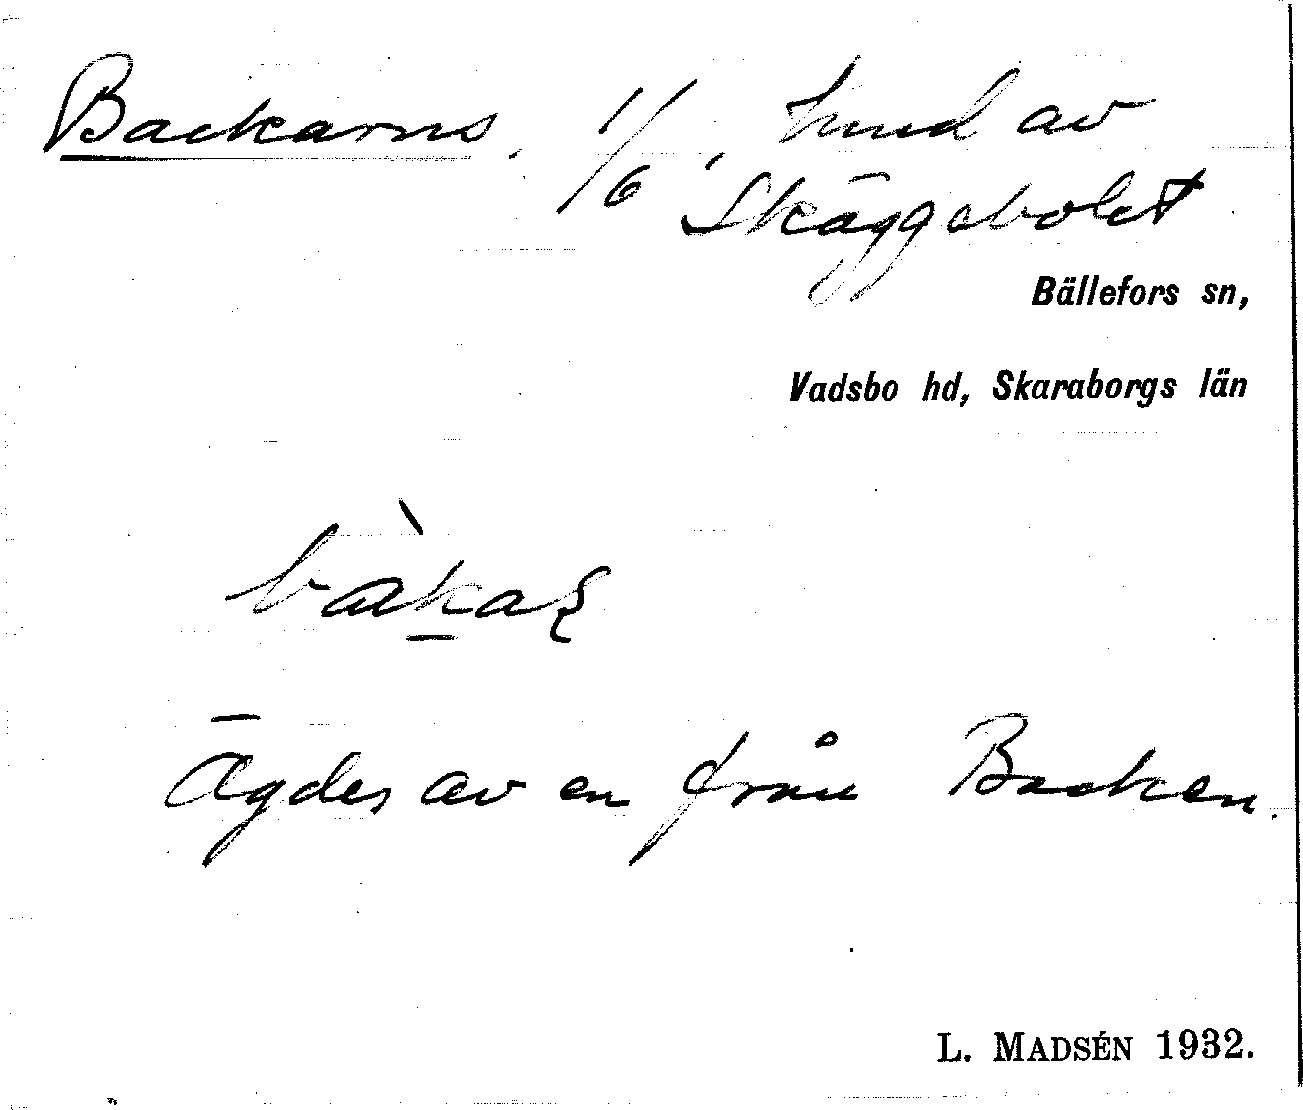 Backarns. 1/6, hmd av
Skäggebolet
Bällefors sn,
Vadsbo hd, Skaraborgs län
Ägdes av en från Backen.
L. MADSÉN 1932.